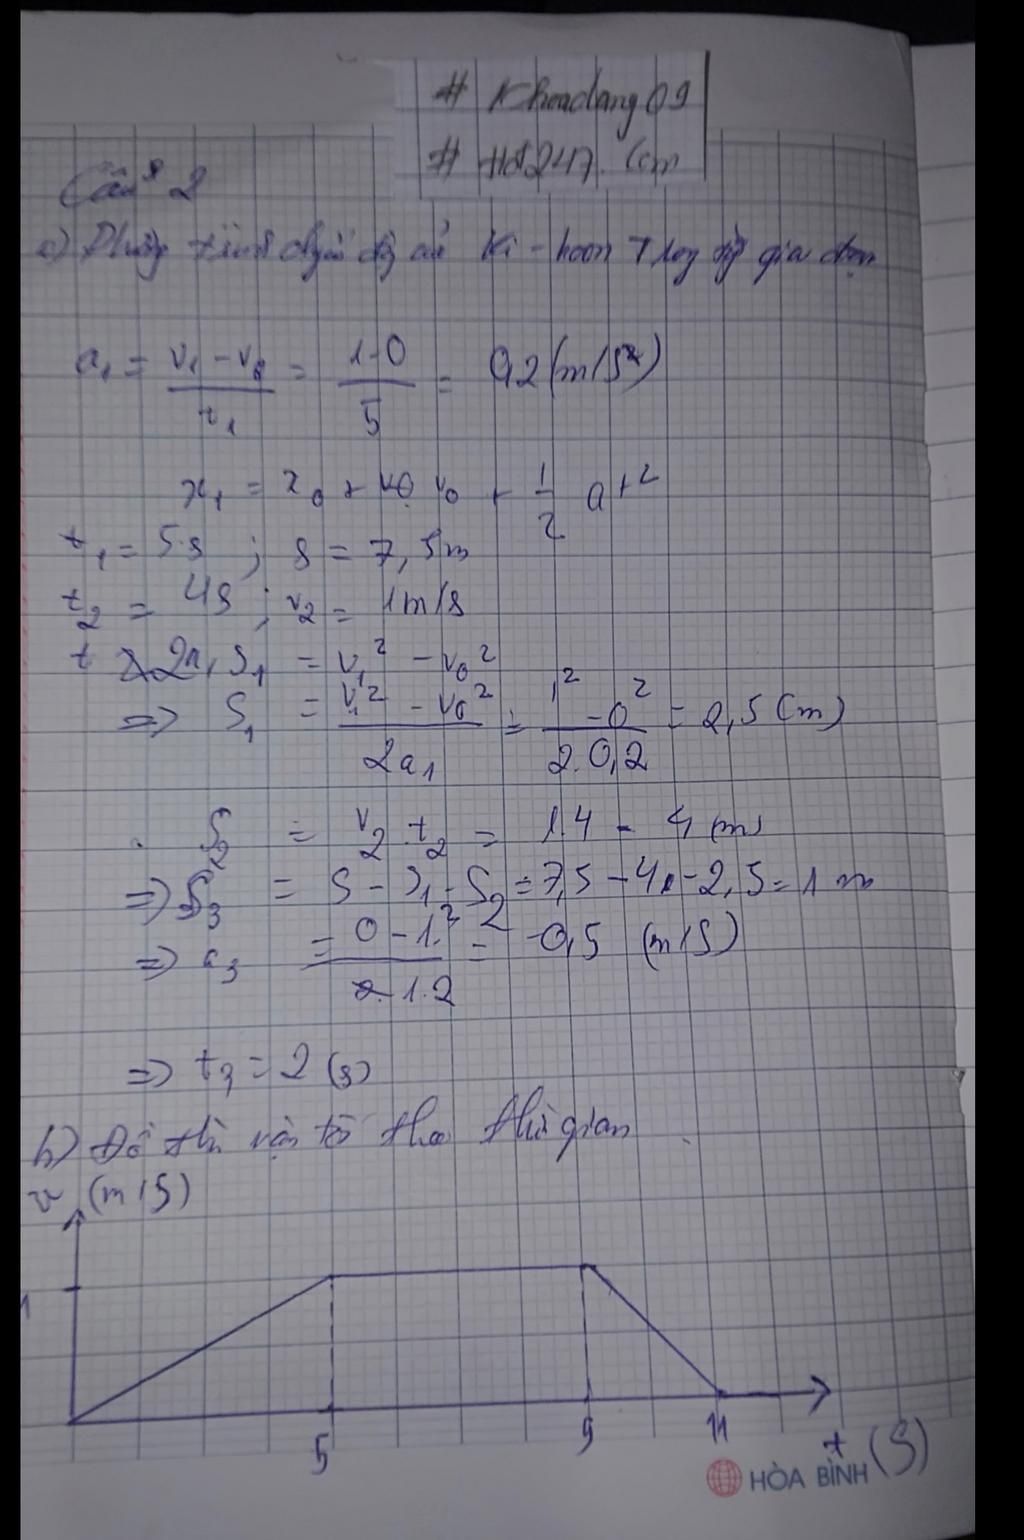 # Khoadang09
# Hot247.com
Câu 2
a) Phương trình chuyển độ củ Ki-hoon Tlog từ gia đoạn
a₁ = (v₁ - v₀)/t₁ = (1-0)/5 = 0,2 (m/s²)
x₁ = x₀ + v₀ + 1/2 at²
t₁ = 5s ; s = 7,5m
t₂ = 4s ; v₂ = 1m/s
t 2a₁ S₁ = v₁² - v₀²
=> S₁ = (v₁² - v₀²)/(2a₁) = (1² - 0²)/(2.0,2) = 2,5 (m)
S₂ = v₂ t₂ = 1.4 = 4 (m)
=> S₃ = S - S₁ - S₂ = 7,5 - 4 - 2,5 = 1 m
=> a₃ = (0 - 1²)/(1.2) = -0,5 (m/s)
=> t₃ = 2 (s)
b) Đồ thị vận tố theo thời gian
v (m/s)
1
5 9 11
t (s)
HÒA BÌNH